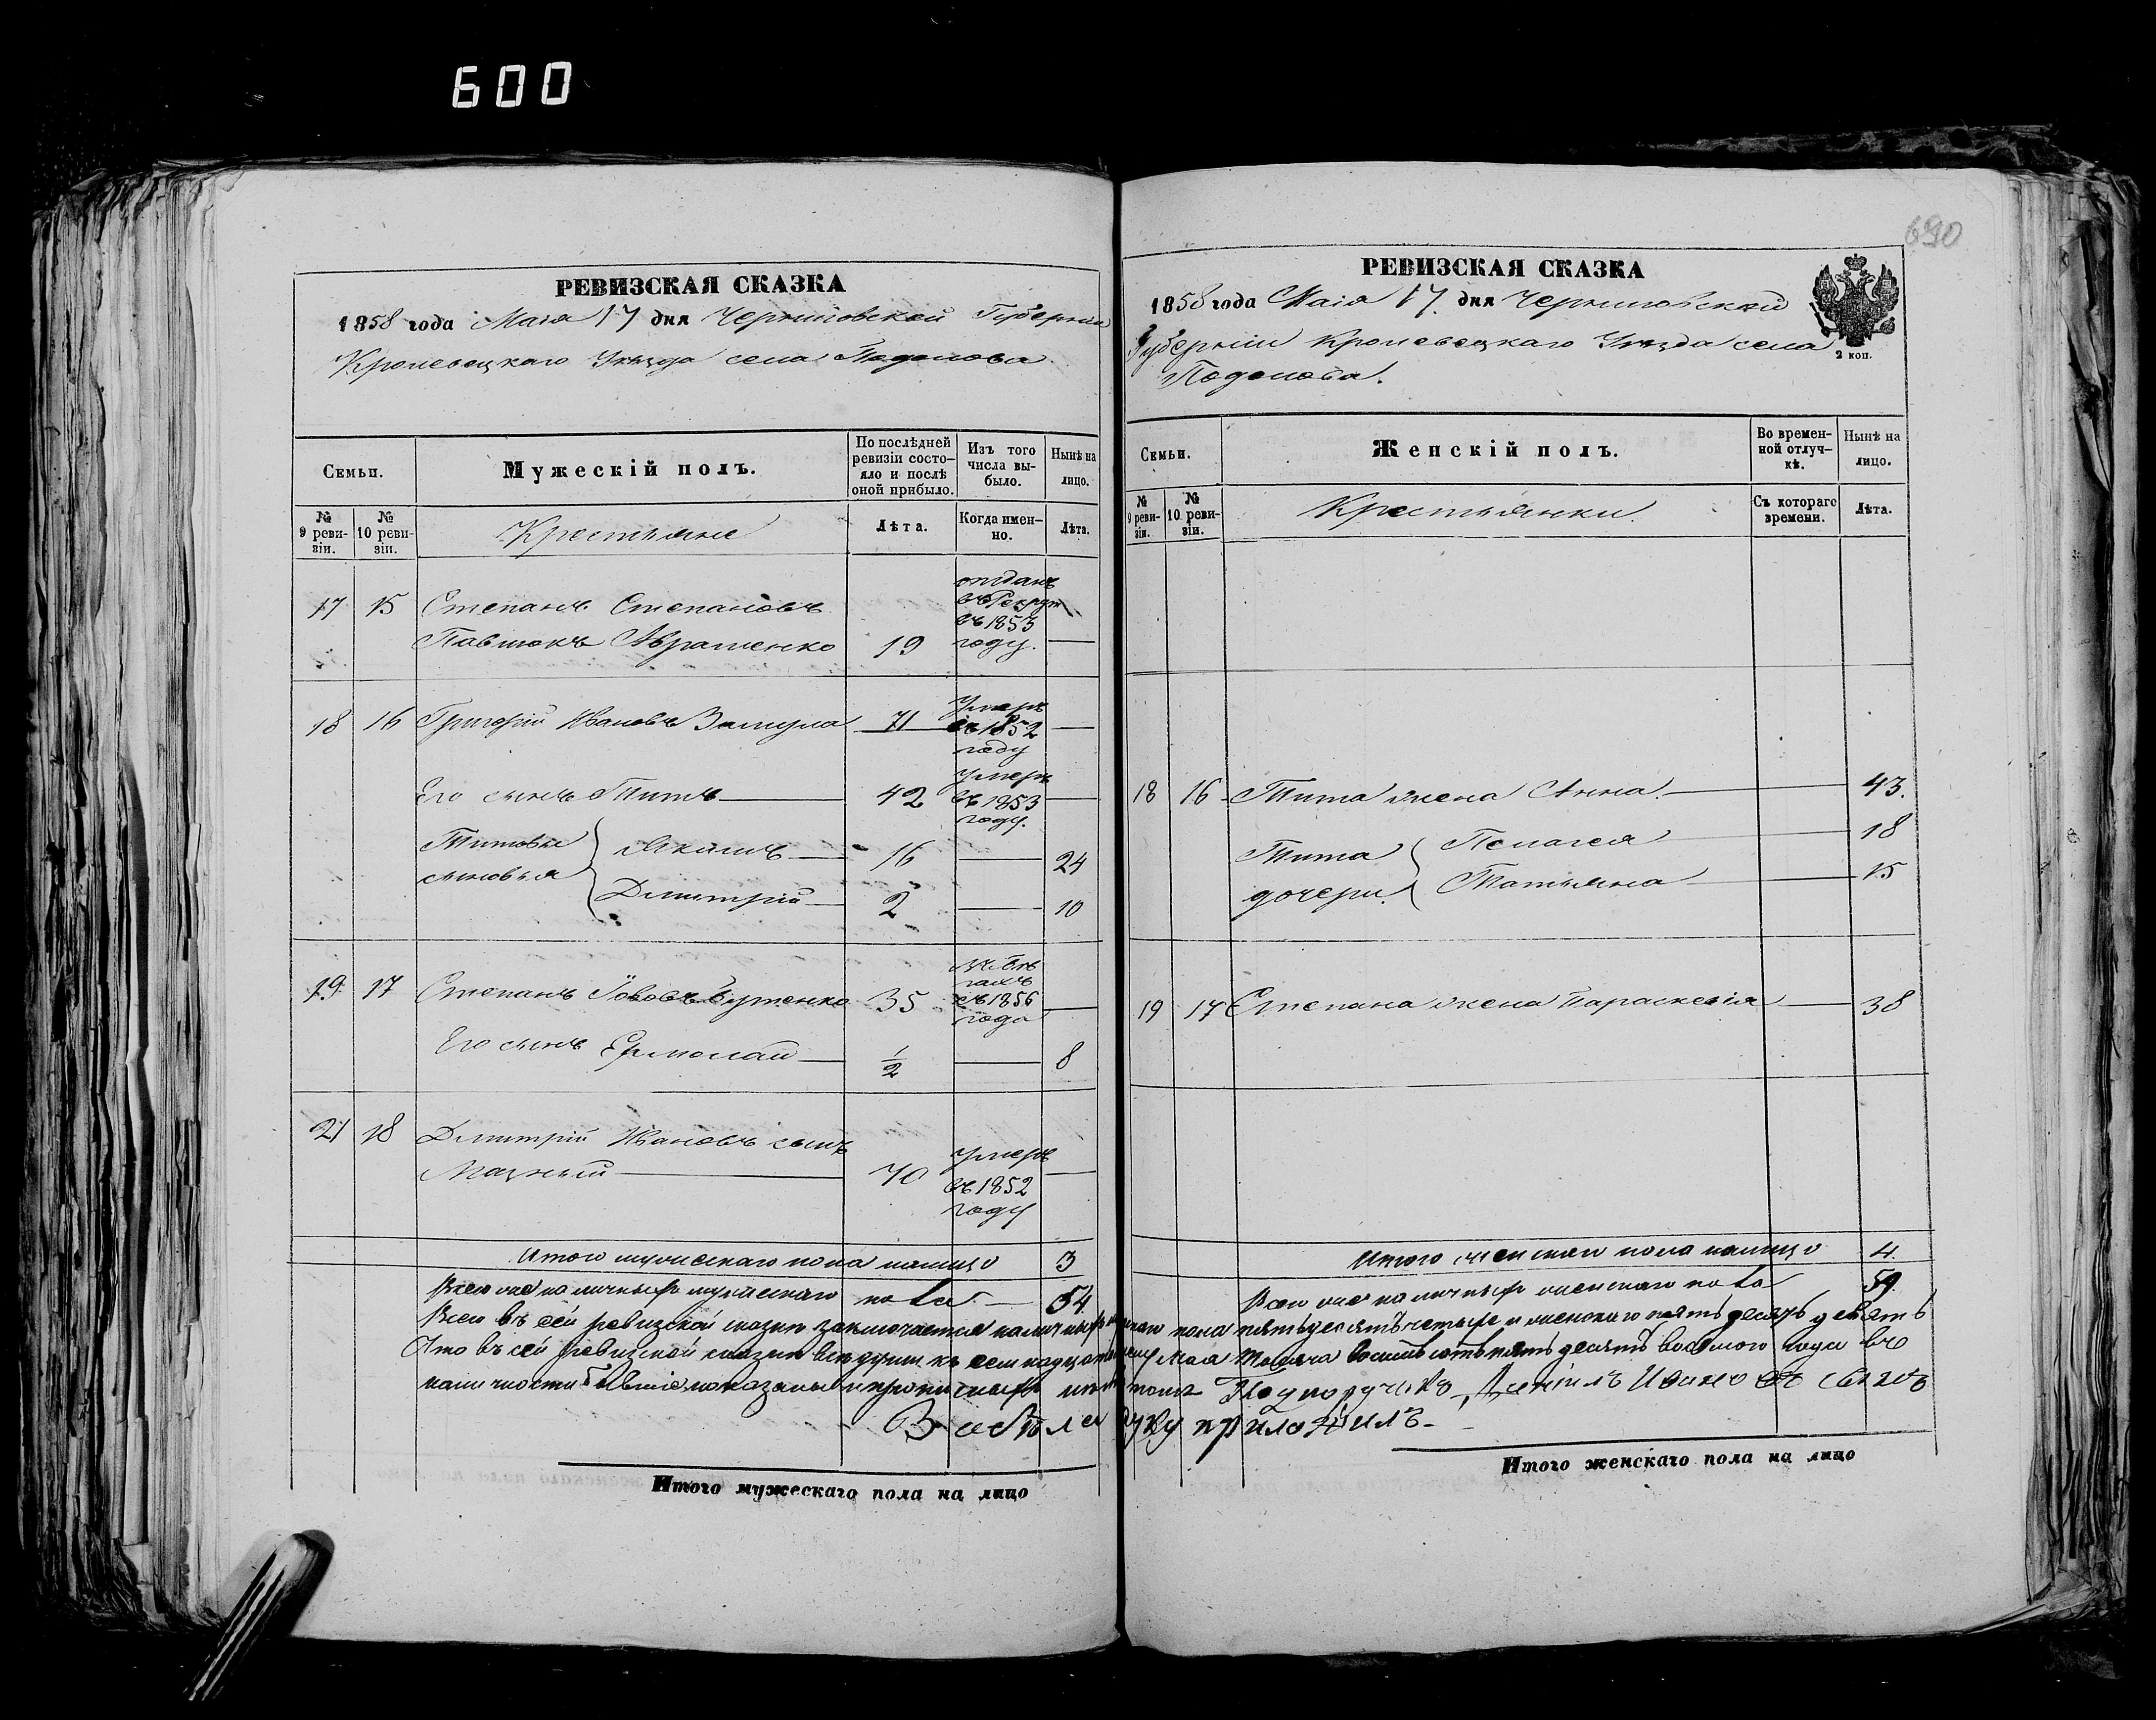 600
690
РЕВИЗСКАЯ СКАЗКА
1858 года Маія 17 дня Черниговской Губерніи
Кролевецкаго Уѣзда села Подолова
Семьи.
Мужескій полъ.
По послѣдней ревизіи состо-яло и послѣ оной прибыло.
Изъ того числа вы-было.
Нынѣ на лицо.
№ 9 реви-зіи.
№ 10 реви-зіи.
Крестьяне
Лѣта.
Когда имен-но.
Лѣта.
17 15 Степанъ Степановъ
Павлюкъ Авраменко 19 отданъ въ Рекруты въ 1853 году. —
18 16 Григорій Ивановъ 71 умеръ въ 1852 году —
Его сынъ Титъ — 42 умеръ въ 1853 году. —
Титовы сыновья
Акимъ — 16 — 24
Дмитрій — 2 — 10
19 17 Степанъ Іововъ 35 въ бѣгахъ съ 1856 года —
Его сынъ Ермолай — 1/2 — 8
21 18 Дмитрій Ивановъ сынъ
Мазный — 70 умеръ въ 1852 году —
Итого мужескаго пола налицо 3
Всего же наличныхъ мужескаго пола — 54
РЕВИЗСКАЯ СКАЗКА
1858 года Маія 17. дня Черниговской
Губерніи Кролевецкаго Уѣзда села
Подолова.
2 коп.
Семьи.
Женскій полъ.
Во времен-ной отлуч-кѣ.
Нынѣ на лицо.
№ 9 реви-зіи.
№ 10 реви-зіи.
Крестьянки.
Съ котораго времени.
Лѣта.
18 16 Тита жена Анна. — 43.
Тита дочери.
Пелагея — 18
Татьяна — 15
19 17 Степана жена Параскевія — 38
Итого женскаго пола налицо 4.
Всего же наличныхъ женскаго пола 59.
Всего въ сей ревизской сказкѣ заключается наличныхъ мужескаго пола пятьдесятъ четыре и женскаго пятьдесятъ девять
Что въ сей ревизской сказкѣ всѣ души къ семнадцатому Мая тысяча восемьсотъ пятьдесятъ восьмого года въ
наличности бывшіе показаны и прописныхъ нѣтъ въ томъ Подпоручикъ Даніилъ Ивановъ сынъ
руку приложилъ-
Итого мужескаго пола на лицо
Итого женскаго пола на лицо